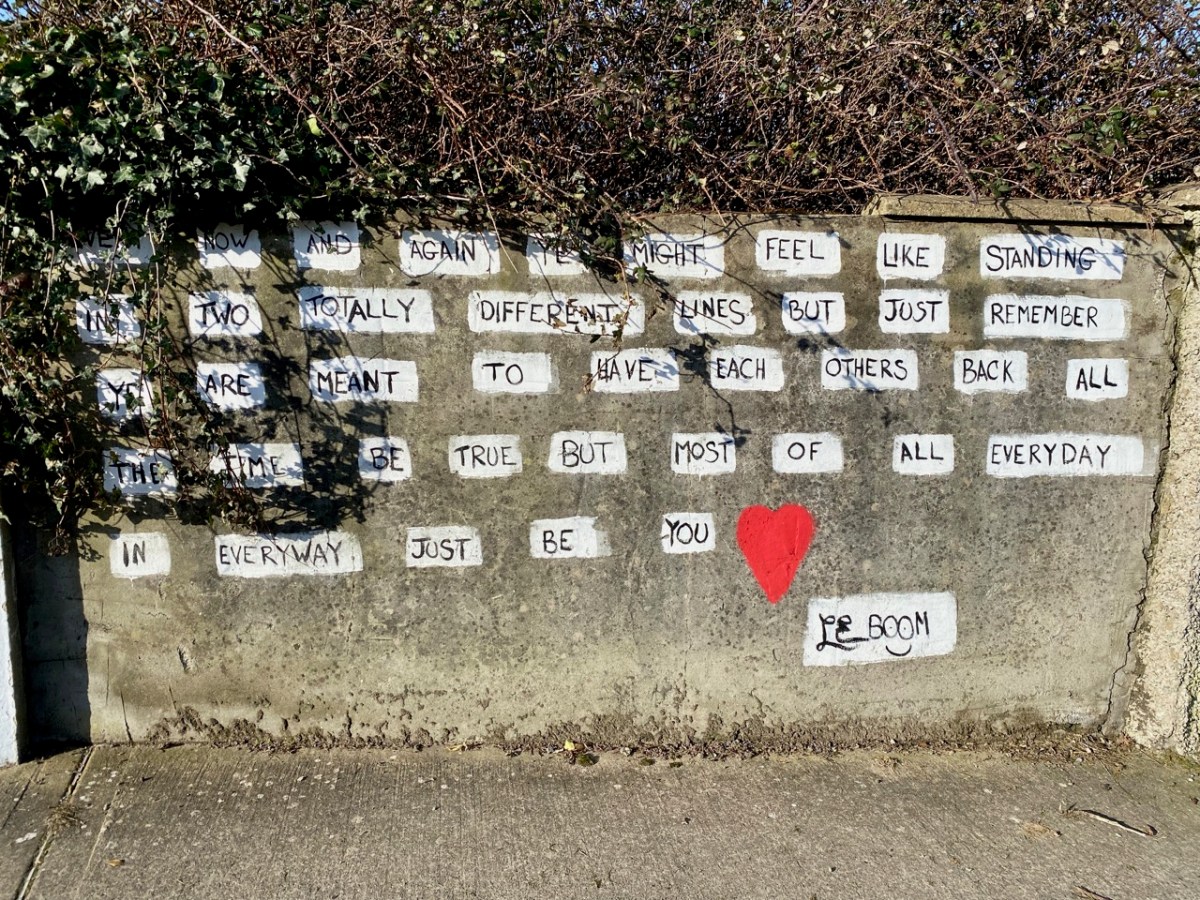 EVERY NOW AND AGAIN YE MIGHT FEEL LIKE STANDING
IN TWO TOTALLY DIFFERENT LINES BUT JUST REMEMBER
YE ARE MEANT TO HAVE EACH OTHERS BACK ALL
THE TIME BE TRUE BUT MOST OF ALL EVERYDAY
IN EVERYWAY JUST BE YOU
LE BOOM